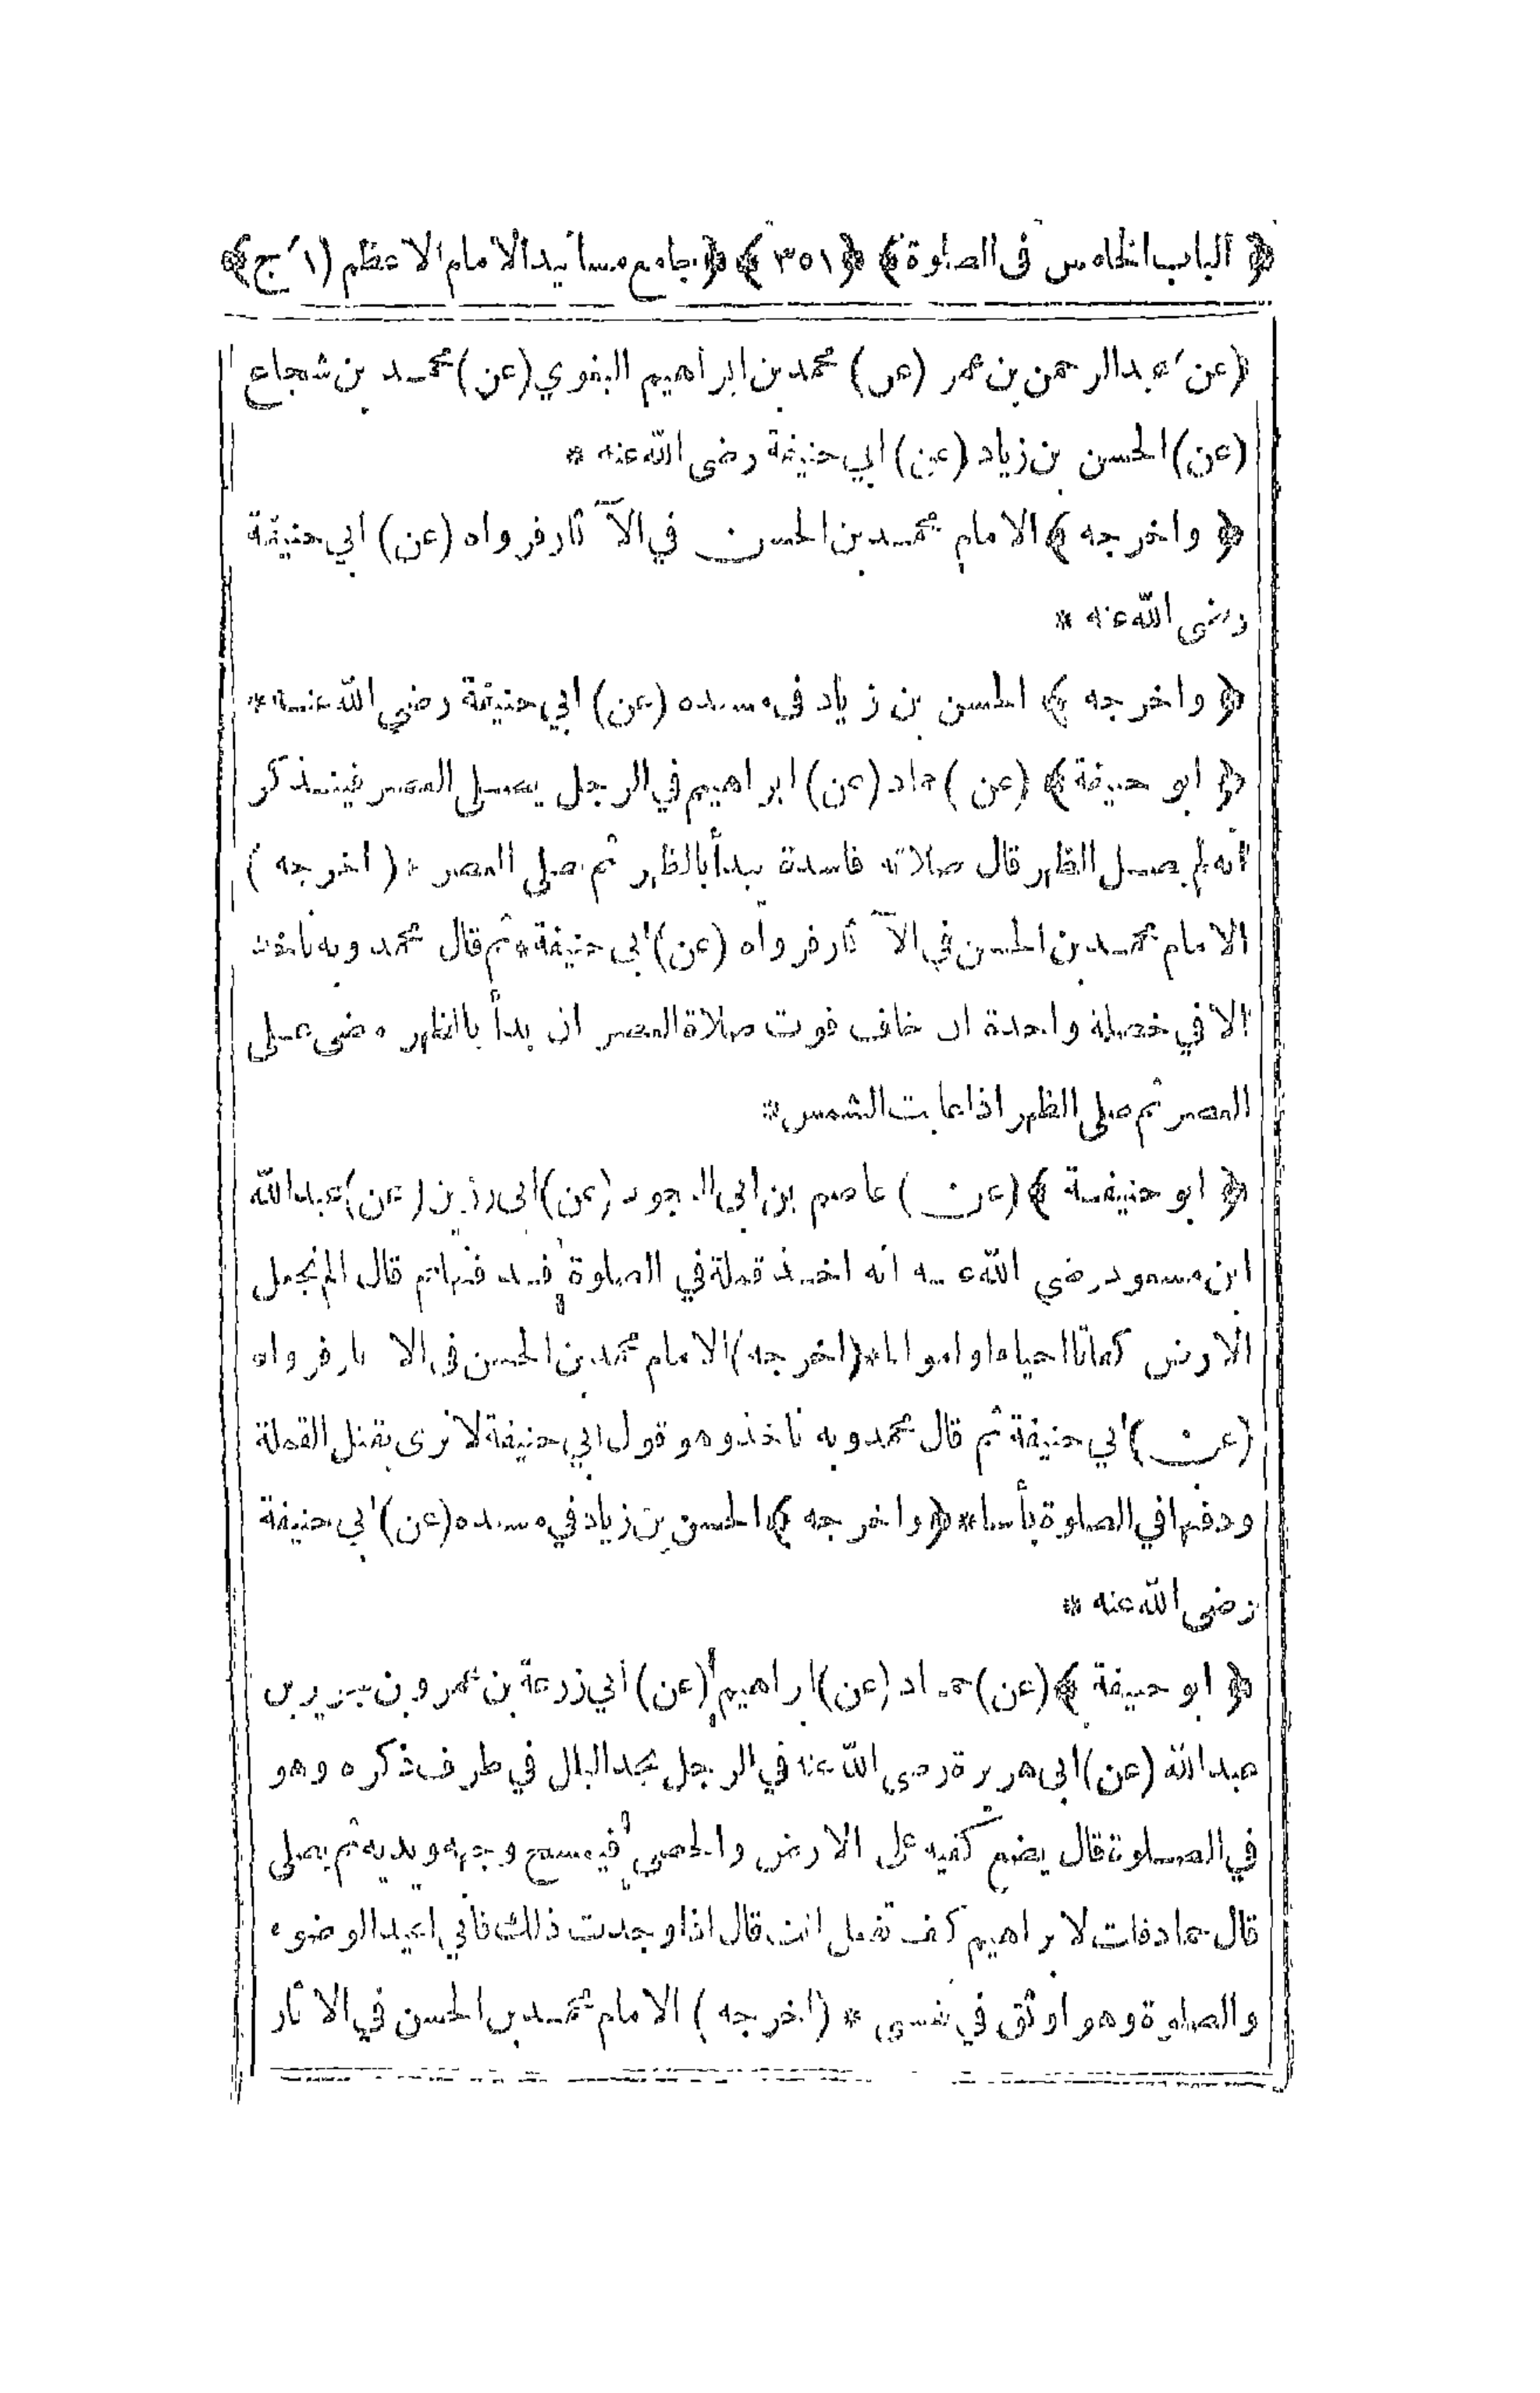 ﴿ الباب الخامس فى الصلوة ﴾ ﴿ ٣٥١ ﴾ ﴿ جامع مسانيد الامام الاعظم (١ ج) ﴾
(عن) عبد الرحمن بن عمر (عن) محمد بن ابراهيم البغوي (عن) محمد بن شجاع
(عن) الحسن بن زياد (عن) ابي حنيفة رضى الله عنه *
﴿ واخرجه ﴾ الامام محمد بن الحسن في الآثار فرواه (عن) ابي حنيفة
رضى الله عنه *
﴿ واخرجه ﴾ الحسن بن زياد فى مسنده (عن) ابي حنيفة رضي الله عنه *
﴿ ابو حنيفة ﴾ (عن) حماد (عن) ابراهيم في الرجل يصلى العصر فيتذكر
انه لم يصل الظهر قال صلاته فاسدة يبدأ بالظهر ثم يصلى العصر * (اخرجه)
الامام محمد بن الحسن في الآثار فرواه (عن) ابي حنيفة * ثم قال محمد وبه نأخذ
الا في خصلة واحدة ان خاف فوت صلاة العصر ان بدأ بالظهر مضى على
العصر ثم صلى الظهر اذا غابت الشمس *
﴿ ابو حنيفة ﴾ (عن) عاصم بن ابى النجود (عن) ابى رزين (عن) عبد الله
ابن مسعود رضي الله عنه انه اخذ قملة في الصلوة فدفنها ثم قال الم نجعل
الارض كفاتا احياء او امواتا * (اخرجه) الامام محمد بن الحسن فى الاثار فرواه
(عن) ابي حنيفة ثم قال محمد وبه ناخذ وهو قول ابي حنيفة لا نرى بقتل القملة
ودفنها في الصلوة بأسا * ﴿ واخرجه ﴾ الحسن بن زياد في مسنده (عن) ابي حنيفة
رضى الله عنه *
﴿ ابو حنيفة ﴾ (عن) حماد (عن) ابراهيم (عن) أبي زرعة بن عمرو بن جرير بن
عبد الله (عن) ابى هريرة رضى الله عنه في الرجل يجد البلل في طرف ذكره وهو
في الصلوة قال يضع كفيه على الارض والحصى فيمسح وجهه ويديه ثم يصلى
قال حماد فقلت لابراهيم كيف تفعل انت قال اذا وجدت ذلك فاني اعيد الوضوء
والصلوة وهو اوثق في نفسى * (اخرجه) الامام محمد بن الحسن في الاثار